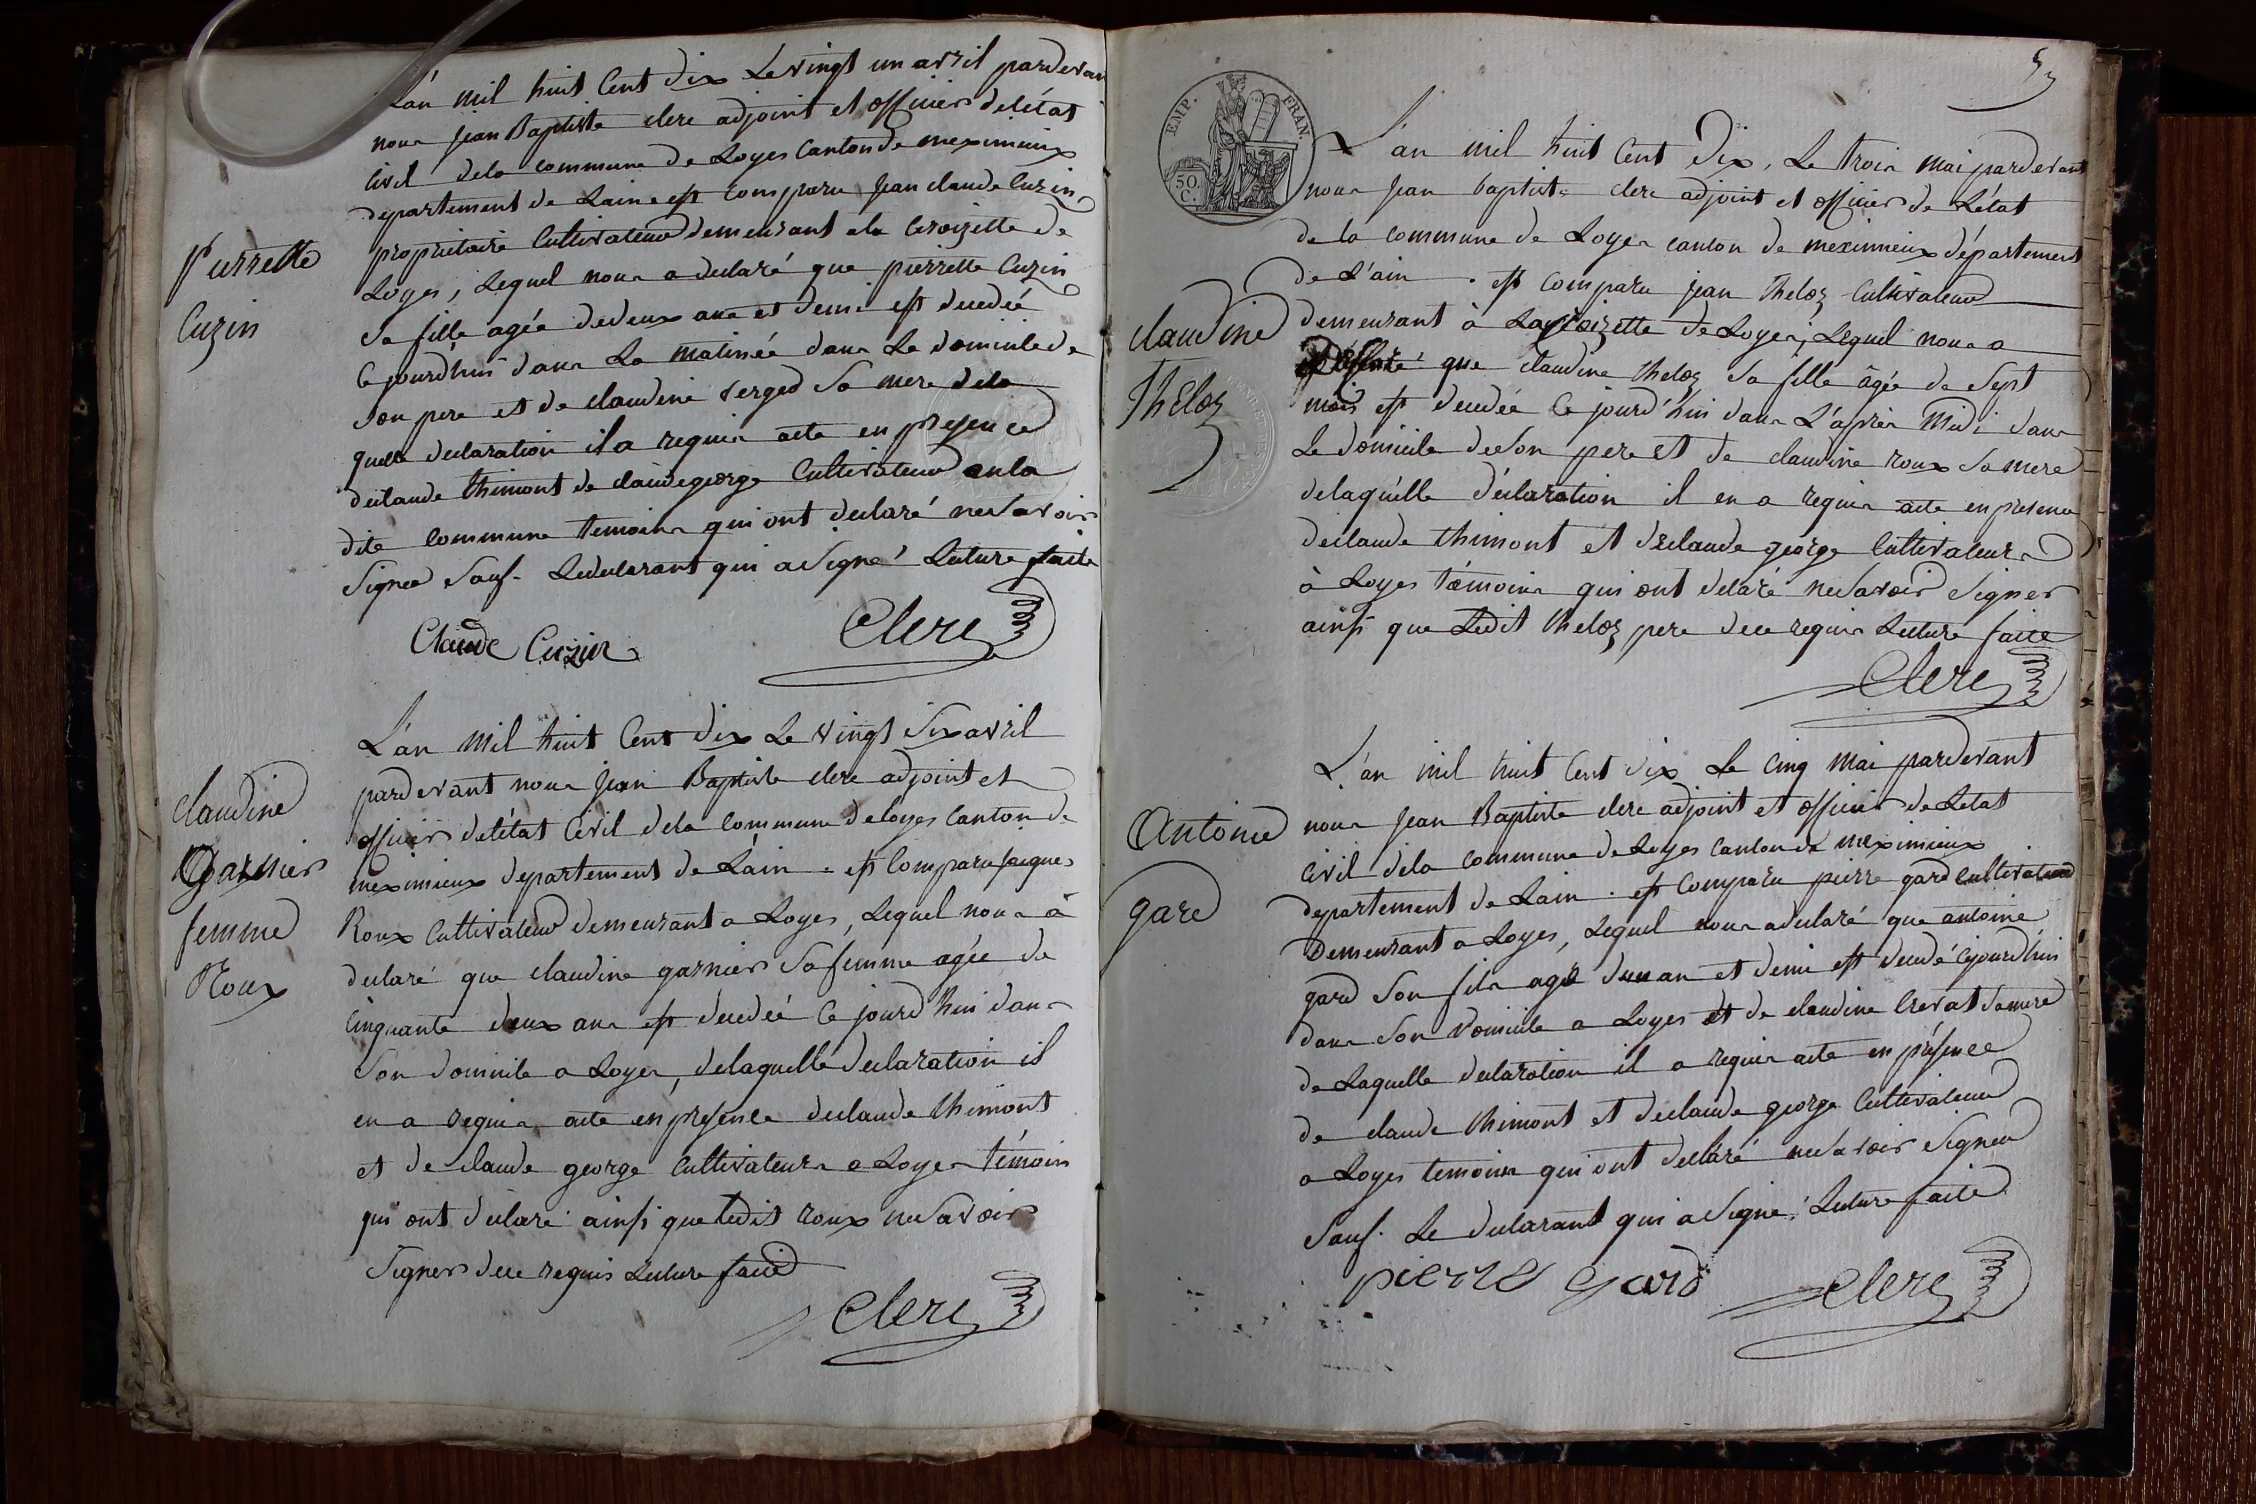 L'an mil huit Cent dix Le vingt un avril pardevan
nous jean Baptiste clerc adjoint et officier de létat
Civil dela commune de Loyes Canton de meximieux
departement de Lain. est comparu jean claude Cuzin
propriétaire Cultivateur demeurant ala Croizette de
Loyes, Lequel nous a declaré que pierrette Cuzin
Sa fille agée de deux ans et demi est decedée
Ce jourd'hui dans La matinée dans Le domicile de
Son pere et de claudine verged Sa mere dela
quelle declaration il a requis acte en presence
declaude thimont de claude george Cultivateur en la
dite commune temoins qui ont declaré ne Savoir
Signer Sauf Le declarant qui a Signé Lecture faite
Claude Cuzin
Clerc
Pierrette
Cuzin
L'an mil huit Cent dix Le vingt Six avril
pardevant nous jean Baptiste clerc adjoint et
officier de létat Civil dela commune de loyes Canton de
meximieux departement de Lain. est Comparu jaques
Roux Cultivateur demeurant a Loyes, Lequel nous à
declaré que claudine garnier Sa femme agée de
cinquante deux ans est decedée Ce jourd'hui dans
Son domicile a Loyes, delaquelle declaration il
en a requis acte en presence declaude thimont
et de claude george Cultivateurs a Loyes témoins
qui ont déclaré ainsi que Ledit roux ne Savoir
Signer de ce requis Lecture faite
Clerc
claudine
Garnier
femme
Roux
5
EMP. FRAN.
50
C.
L'an mil huit Cent Dix, Le trois mai pardevant
nous jean baptiste clerc adjoint et officier de L'état
de la commune de Loyes canton de meximieux département
de L'ain. est comparu jean theloz Cultivateur
demeurant à La Croizette de Loyes, Lequel nous a
déclaré que claudine theloz Sa fille âgée de Sept
mois est decedée Ce jourd'hui dans L'après Midi dans
Le domicile de Son pere et de claudine roux Sa mere
delaquelle déclaration il en a requis acte en presence
declaude thimont et declaude george Cultivateurs
à Loyes témoins qui ont declaré ne Savoir Signer
ainsi que Ledit theloz pere de ce requis Lecture faite
Clerc
claudine
Theloz
L'an mil huit Cent dix Le Cinq Mai pardevant
nous jean Baptiste clerc adjoint et officier de Létat
Civil dela commune de Loyes canton de meximieux
departement de Lain. est Comparu pierre gard cultivateur
Demeurant a Loyes, Lequel nous a declaré que antoine
gard Son fils agé dun an et demi est decedé cejourd'hui
dans Son domicile a Loyes et de claudine Crevat Sa mere
de Laquelle declaration il a requis acte en présence
de claude thimont et declaude george Cultivateur
a Loyes temoins qui ont declaré ne Savoir Signer
Sauf Le declarant qui a Signé Lecture faite
pierre gard
Clerc
Antoine
gard